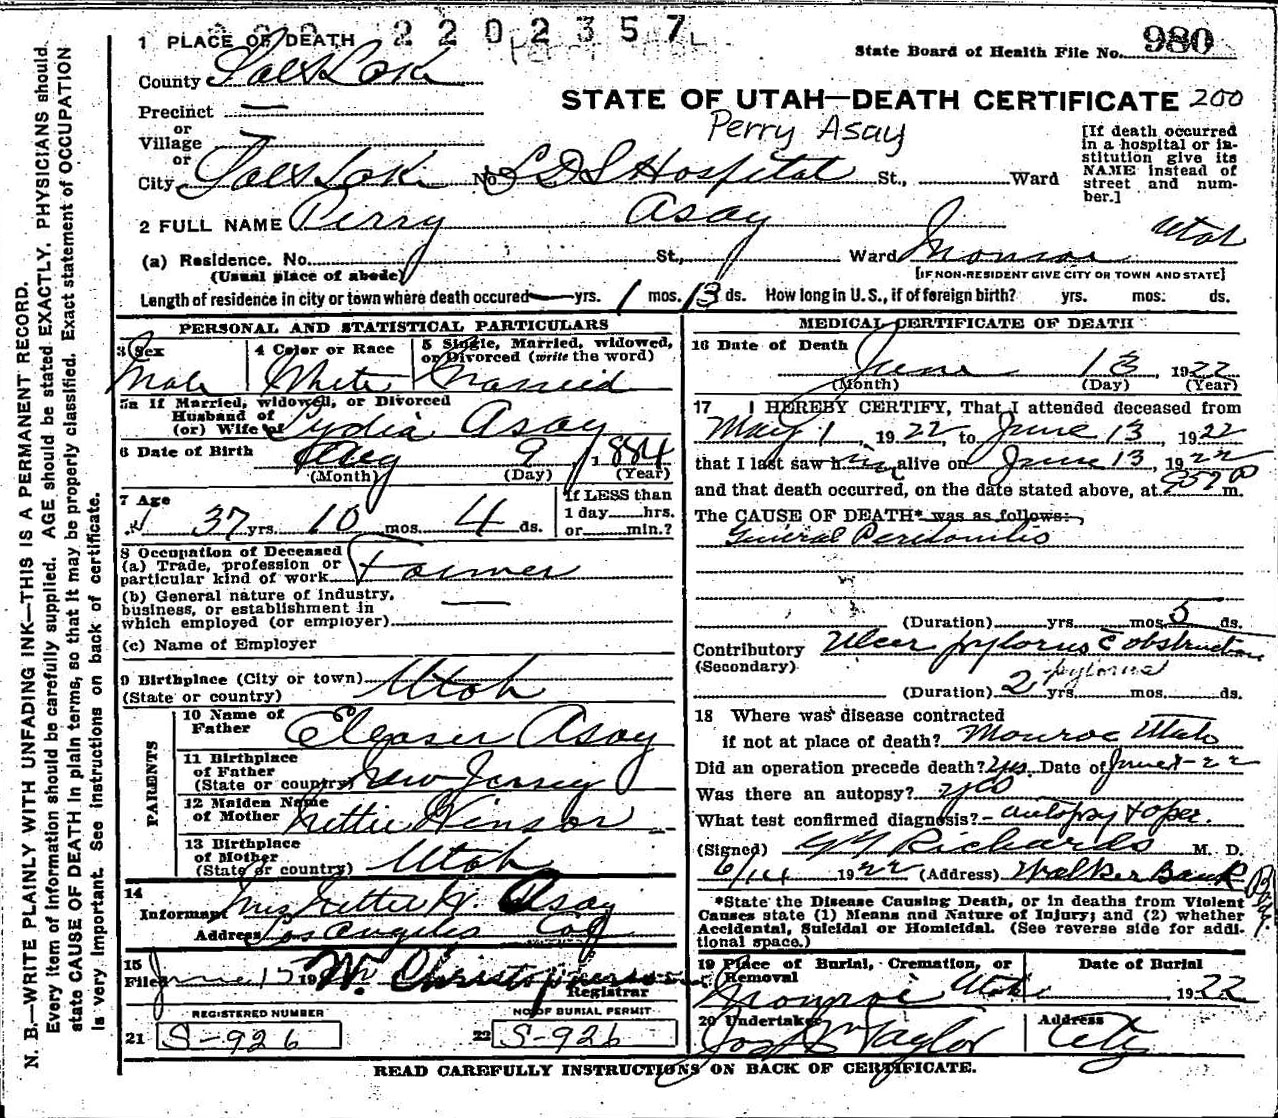 2202357
1 PLACE OF DEATH
State Board of Health File No. 980
County Salt Lake
STATE OF UTAH—DEATH CERTIFICATE 200
Precinct —
Perry Asay
or
Village
or
City Salt Lake No. LDS Hospital St., Ward
[If death occurred in a hospital or institution give its NAME instead of street and number.]
2 FULL NAME Perry Asay
(a) Residence. No. St., Ward Monroe Utah
(Usual place of abode) [IF NON-RESIDENT GIVE CITY OR TOWN AND STATE]
Length of residence in city or town where death occured — yrs. 1 mos. 13 ds. How long in U. S., if of foreign birth? yrs. mos. ds.
PERSONAL AND STATISTICAL PARTICULARS
3 Sex 4 Color or Race 5 Single, Married, widowed, or Divorced (write the word)
Male White Married
5a If Married, widowed, or Divorced
Husband of
(or) Wife of Lydia Asay
6 Date of Birth Aug 9 1884
(Month) (Day) (Year)
7 Age If LESS than
37 yrs. 10 mos. 4 ds. 1 day hrs.
or min.?
8 Occupation of Deceased
(a) Trade, profession or
particular kind of work Farmer
(b) General nature of industry,
business, or establishment in —
which employed (or employer)
(c) Name of Employer
9 Birthplace (City or town) Utah
(State or country)
PARENTS
10 Name of
Father Eleaser Asay
11 Birthplace
of Father
(State or country) New Jersey
12 Maiden Name
of Mother Nettie Winsor
13 Birthplace
of Mother
(State or country) Utah
14
Informant Mrs Nettie W. Asay
Address Los Angeles Calf
15
Filed June 15 19 Wm Christopherson
Registrar
REGISTERED NUMBER NO. OF BURIAL PERMIT
21 S-926 22 S-926
MEDICAL CERTIFICATE OF DEATH
16 Date of Death
June 13, 1922
(Month) (Day) (Year)
17 I HEREBY CERTIFY, That I attended deceased from
May 1, 1922, to June 13, 1922
that I last saw him alive on June 13, 1922
and that death occurred, on the date stated above, at 957 P m.
The CAUSE OF DEATH* was as follows:
General Peritonitis
(Duration) yrs. mos. 5 ds.
Contributory Ulcer pylorus c̄ obstruction
(Secondary) pylorus
(Duration) 2 yrs. mos. ds.
18 Where was disease contracted
if not at place of death? Monroe Utah
Did an operation precede death? yes Date of June 1-22
Was there an autopsy? yes
What test confirmed diagnosis? autopsy & oper.
(Signed) G G Richards M. D.
6/14 1922 (Address) Walker Bank Bldg.
*State the Disease Causing Death, or in deaths from Violent
Causes state (1) Means and Nature of Injury; and (2) whether
Accidental, Suicidal or Homicidal. (See reverse side for additional space.)
19 Place of Burial, Cremation, or Date of Burial
Removal
Monroe Utah 1922
20 Undertaker Address
Jos Wm Taylor City
READ CAREFULLY INSTRUCTIONS ON BACK OF CERTIFICATE.
N. B.—WRITE PLAINLY WITH UNFADING INK—THIS IS A PERMANENT RECORD.
Every item of information should be carefully supplied. AGE should be stated EXACTLY. PHYSICIANS should
state CAUSE OF DEATH in plain terms, so that it may be properly classified. Exact statement of OCCUPATION
is very important. See instructions on back of certificate.